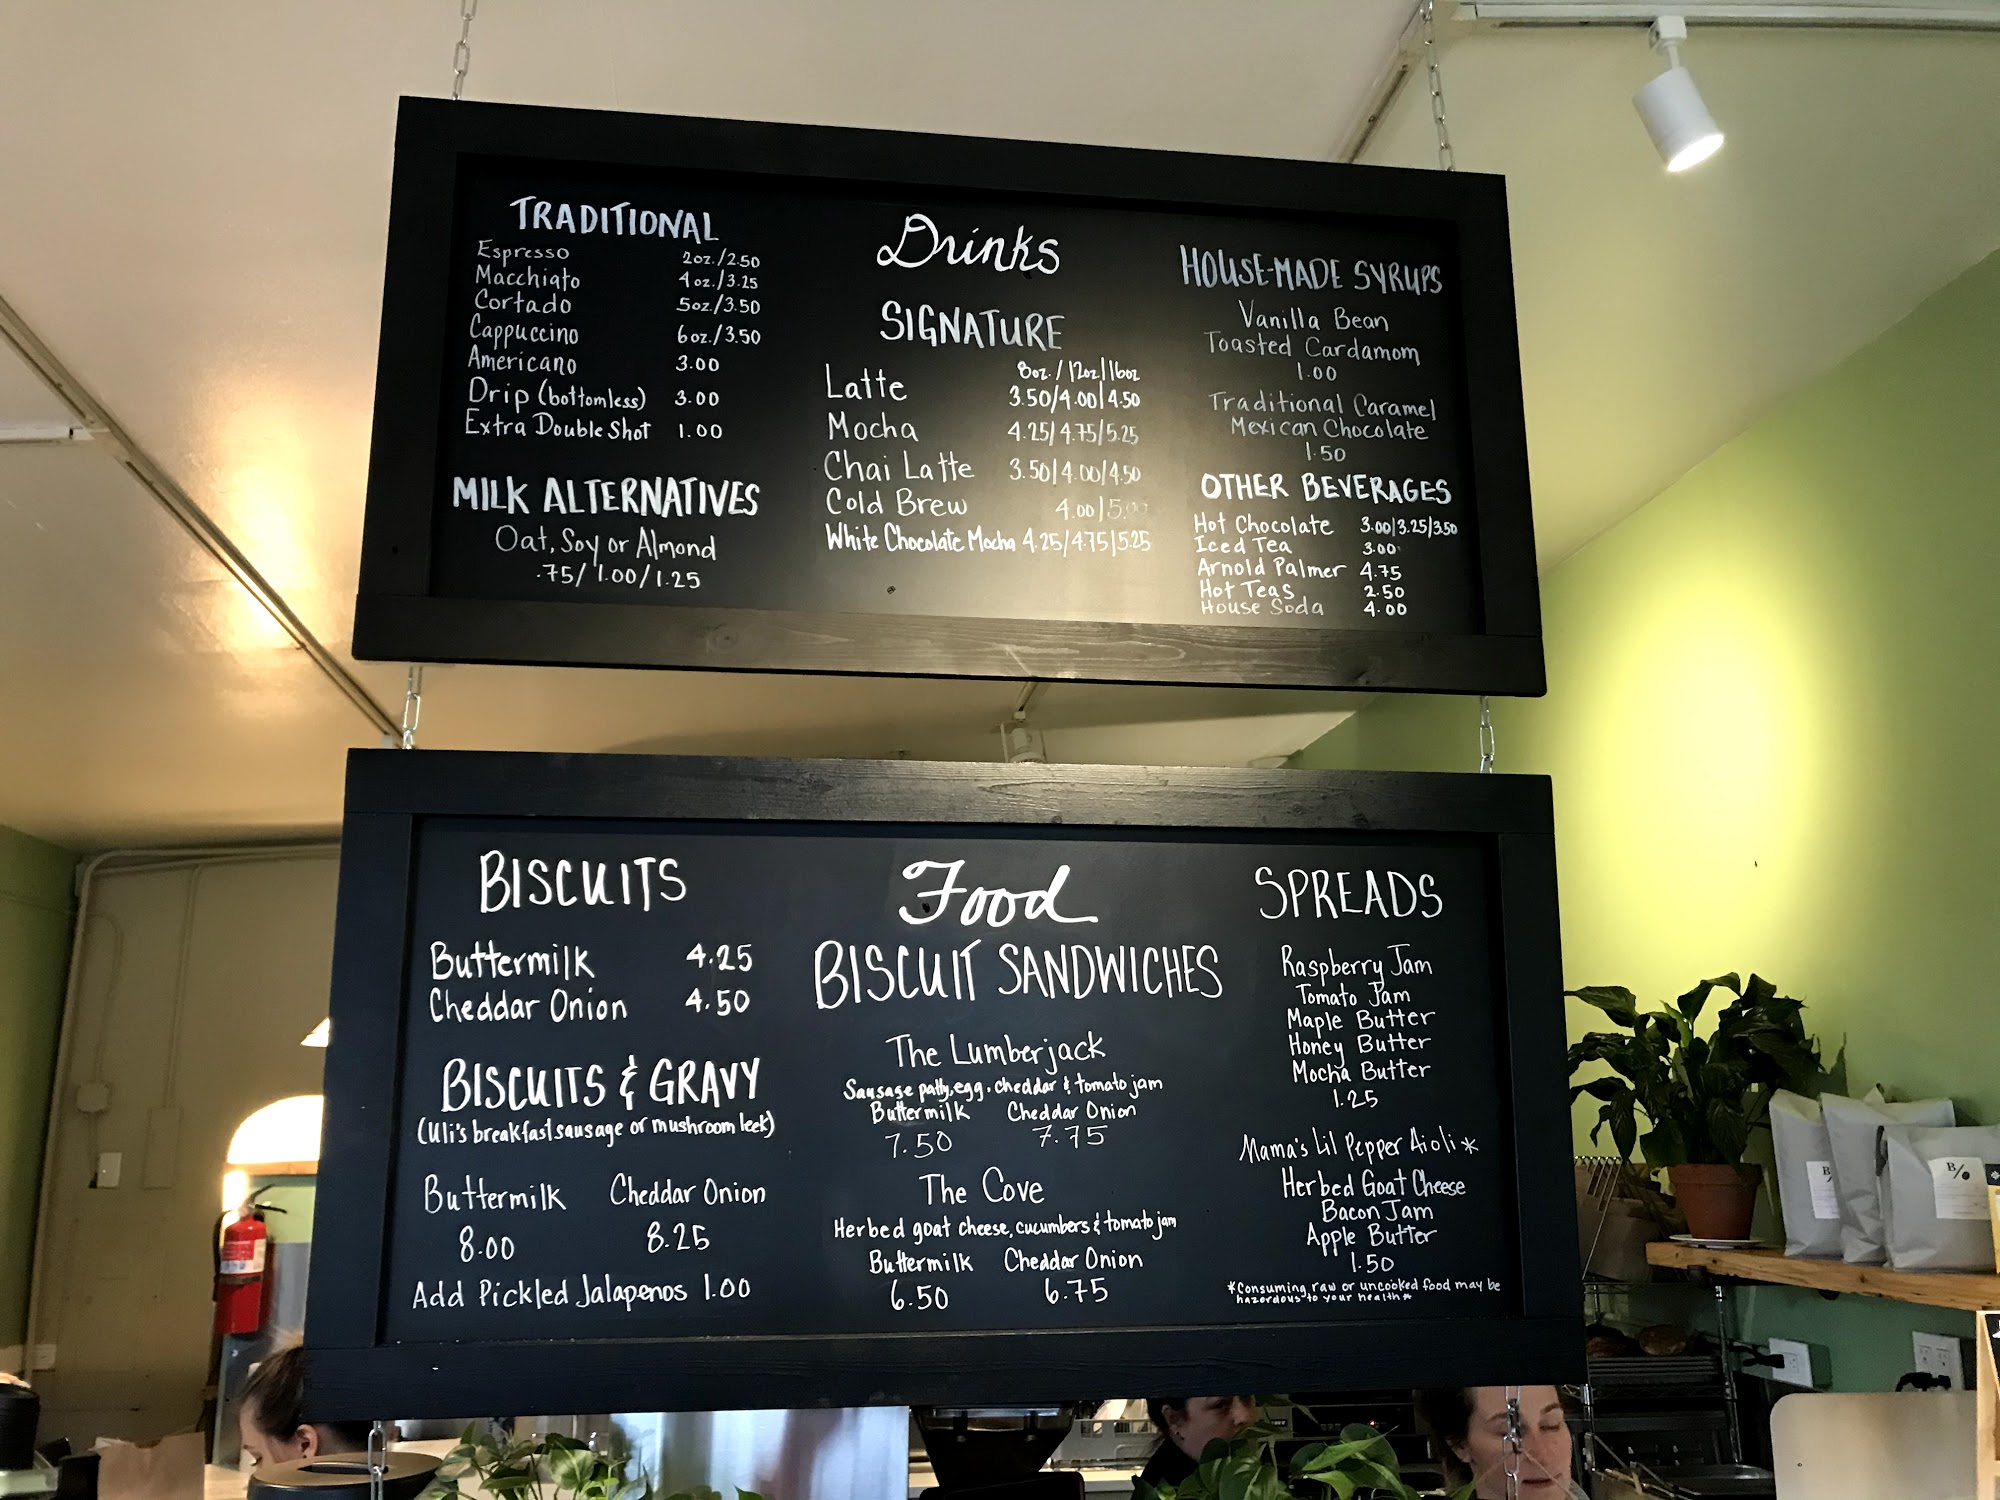 Drinks
TRADITIONAL
Espresso 2oz./2.50
Macchiato 4oz./3.25
Cortado 5oz./3.50
Cappuccino 6oz./3.50
Americano 3.00
Drip (bottomless) 3.00
Extra Double Shot 1.00
MILK ALTERNATIVES
Oat, Soy or Almond
.75/1.00/1.25
SIGNATURE
8oz./12oz|16oz
Latte 3.50/4.00|4.50
Mocha 4.25|4.75|5.25
Chai Latte 3.50|4.00|4.50
Cold Brew 4.00|5.00
White Chocolate Mocha 4.25/4.75|5.25
HOUSE-MADE SYRUPS
Vanilla Bean
Toasted Cardamom
1.00
Traditional Caramel
Mexican Chocolate
1.50
OTHER BEVERAGES
Hot Chocolate 3.00|3.25|3.50
Iced Tea 3.00
Arnold Palmer 4.75
Hot Teas 2.50
House Soda 4.00
Food
BISCUITS
Buttermilk 4.25
Cheddar Onion 4.50
BISCUITS & GRAVY
(Uli's breakfast sausage or mushroom leek)
Buttermilk Cheddar Onion
8.00 8.25
Add Pickled Jalapenos 1.00
BISCUIT SANDWICHES
The Lumberjack
Sausage patty, egg, cheddar & tomato jam
Buttermilk Cheddar Onion
7.50 7.75
The Cove
Herbed goat cheese, cucumbers & tomato jam
Buttermilk Cheddar Onion
6.50 6.75
SPREADS
Raspberry Jam
Tomato Jam
Maple Butter
Honey Butter
Mocha Butter
1.25
Mama's Lil Pepper Aioli*
Herbed Goat Cheese
Bacon Jam
Apple Butter
1.50
*Consuming raw or uncooked food may be
hazordous to your health*